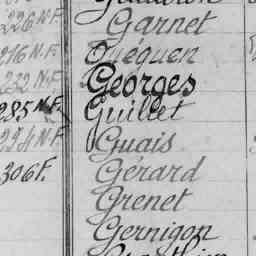 226 N.F. Garnet
216 N.F. Guéguen
232 N.F. Georges
285 N.F. Guillet
224 N.F. Guais
306 F. Gérard
Grenet
Gernigon